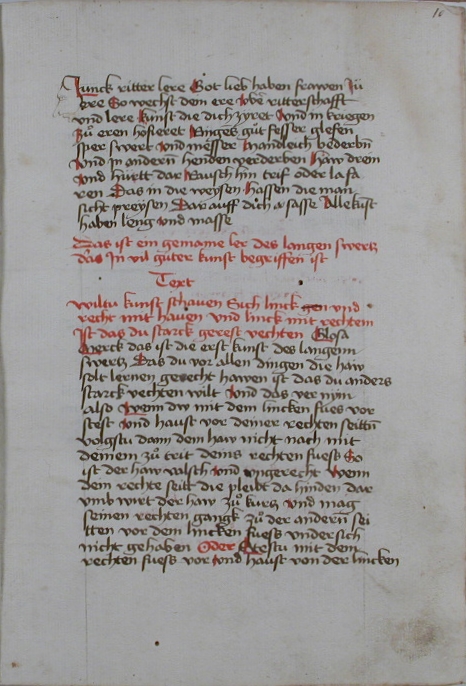 10
Junck ritter lere Got lieb haben frawen Ju
gre So wechst dem ere vbe ritterschafft
vnd lere kunst die dich zyret vnd in kriegen
zů eren hofieret Ringes güt fesser glefen
sper swert vnd messer Mandleich bederbñ
Vnd in andern henden verderben Haw drein
vnd hurtt dar Rausch hin trif oder la fa
ren Das in die weysen hassen die man
sicht preysen Dar auff dich a fasse Alle kust
haben leng vnd masse
Das ist ein gemaine ler des langen swertz
das Jn vil güter kunst begriffen ist
Text
wiltu kunst schauen Sich linck gen vnd
recht mit hauen vnd linck mit rechtem
Jst das du starck gerest vechten Glosa
Merck das ist die erst kunst des langenn
swertz Das du vor allen dingen die haw
solt lernen gerecht hawen ist das du anders
starck vechten wilt Vnd das ver nym
also Wenn dw mit dem lincken fues vor
stest vnd haust vor deiner rechten seittñ
volgstu dann dem haw nicht nach mit
deinem zů trit deins rechten fuess So
ist der haw walsch vnd vngerecht Wenn
dein rechte seitt die pleibt da hinden dar
vmb wirt der haw zů kurtz vnd mag
seinen rechten gangk zů der andern sei
tten vor dem lincken fuess vndersich
nicht gehaben Oder Stestu mit dem
rechten fuess vor vnd haust von der lincken